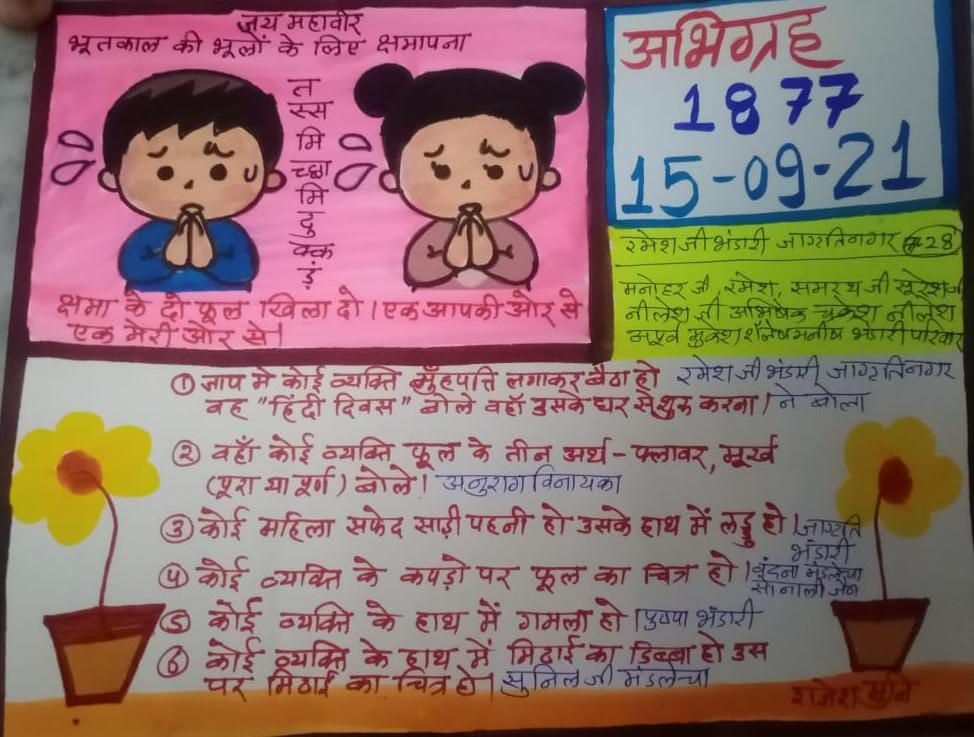 जय महावीर
भूतकाल की भूलों के लिए क्षमापना
त
स्स
मि
च्छा
मि
दु
क्क
डं
क्षमा के दो फूल खिला दो। एक आपकी ओर से
एक मेरी ओर से।
अभिग्रह
1877
15-09-21
रमेश जी भंडारी जाग्रतिनगर 28
मनोहर जी, रमेश, समरथ जी सुरेश जी
नीलेश जी अभिषेक चक्रेश नीलेश
अपूर्व मुकेश शैलेष मनीष भंडारी परिवार
① जाप मे कोई व्यक्ति मुँहपत्ति लगाकर बैठा हो रमेश जी भंडारी जाग्रतिनगर
वह "हिंदी दिवस" बोले वहाँ उसके घर से शुरु करना। ने बोला
② वहाँ कोई व्यक्ति फूल के तीन अर्थ - फ्लावर, मूर्ख
(पूरा या पूर्ण) बोले। अनुराग विनायका
③ कोई महिला सफेद साड़ी पहनी हो उसके हाथ में लड्डु हो। जाग्रति
भंडारी
④ कोई व्यक्ति के कपड़ो पर फूल का चित्र हो। वंदना मंडलेचा
सोनाली जैन
⑤ कोई व्यक्ति के हाथ में गमला हो। पुष्पा भंडारी
⑥ कोई व्यक्ति के हाथ में मिठाई का डिब्बा हो उस
पर मिठाई का चित्र हो। सुनिल जी मंडलेचा
राजेश मुनि